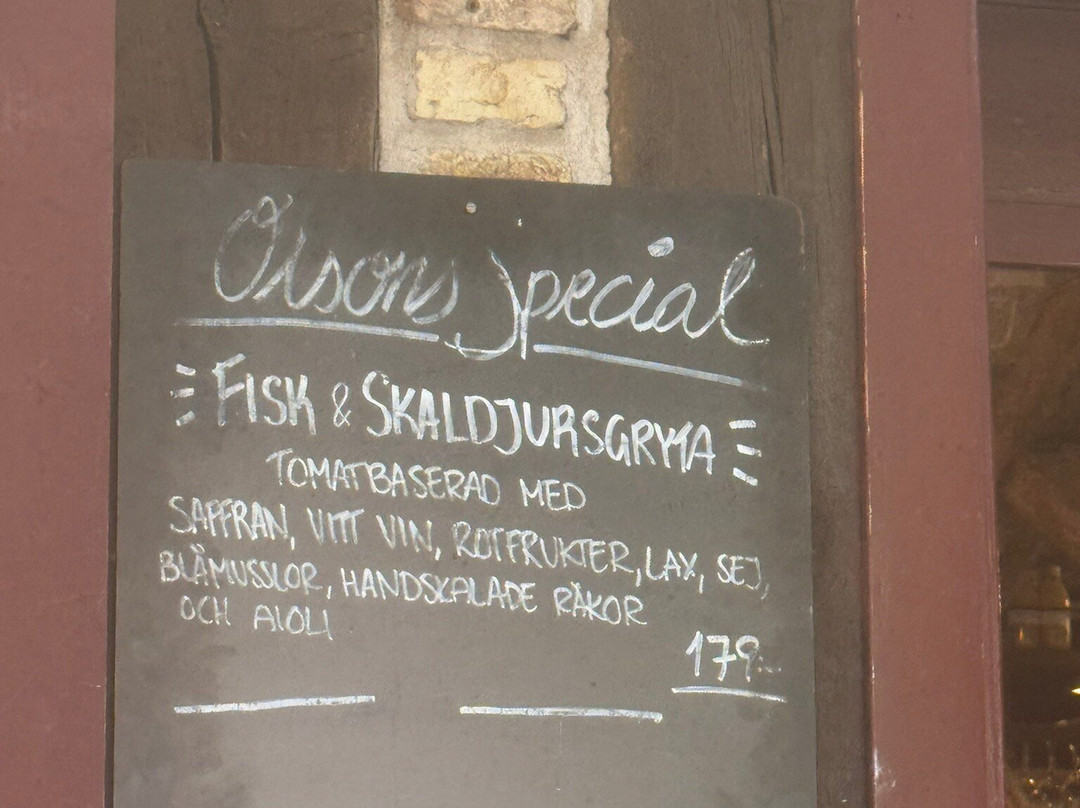 Orsons Special
FISK & SKALDJURSGRYTA
TOMATBASERAD MED
SAFFRAN, VITT VIN, ROTFRUKTER, LAX, SEJ,
BLÅMUSSLOR, HANDSKALADE RÄKOR
OCH AIOLI
179:-